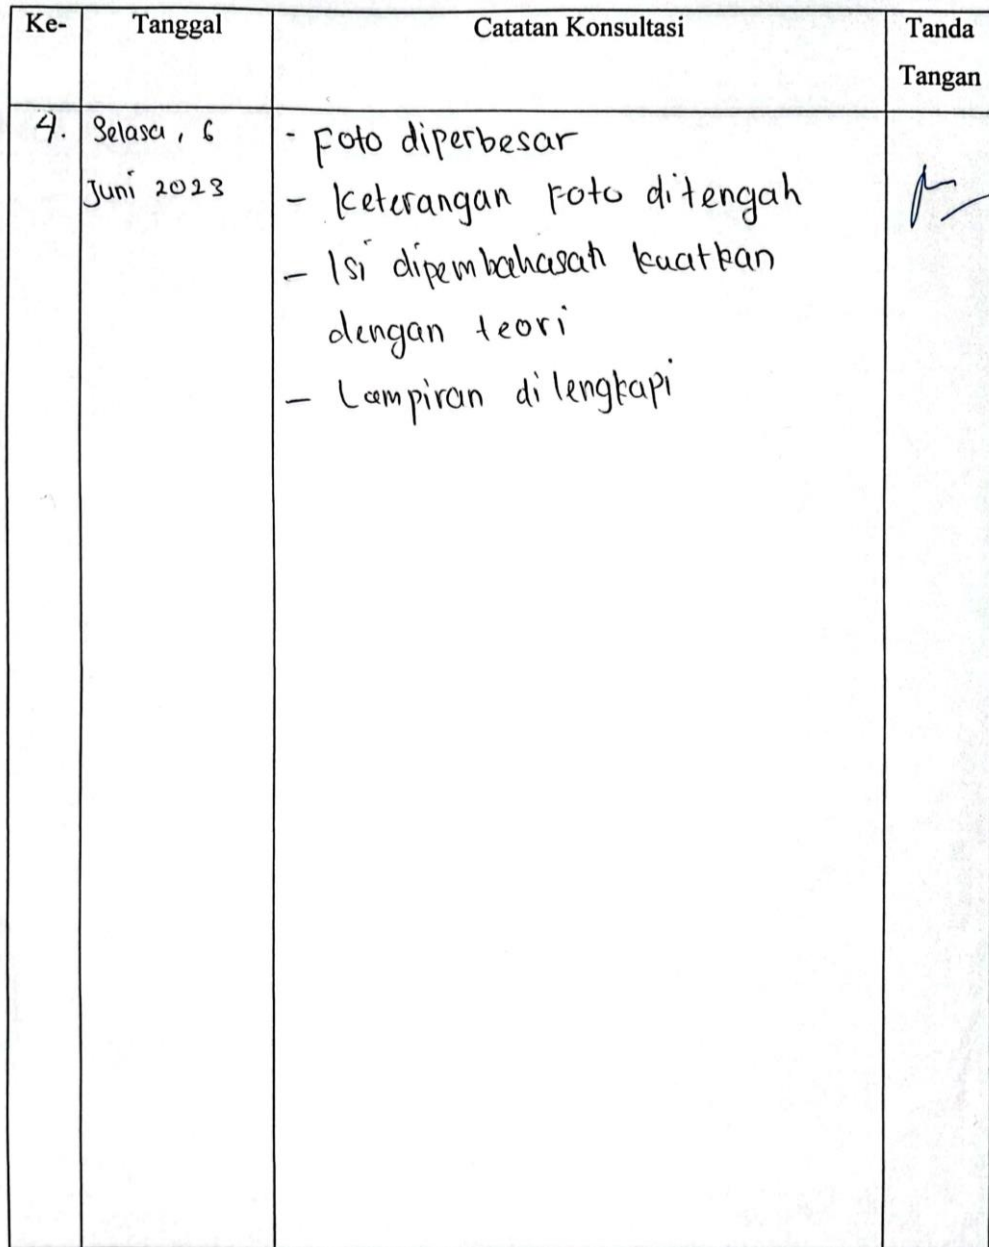 Ke- Tanggal Catatan Konsultasi Tanda
Tangan
4. Selasa, 6 - Foto diperbesar
Juni 2023 - Keterangan Foto ditengah
- Isi dipembahasan kuatkan
dengan teori
- Lampiran di lengkapi